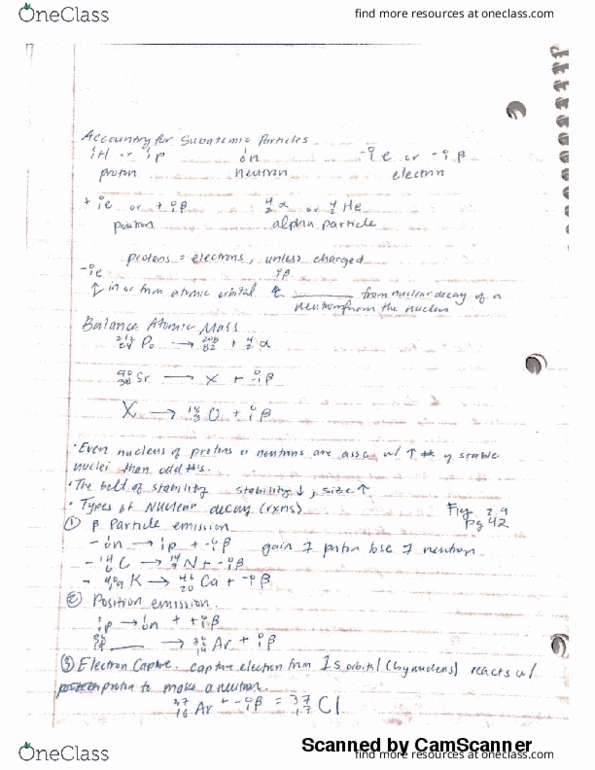 OneClass find more resources at oneclass.com
Accounting for Subatomic Particles
¹₁H or ¹₁p ¹₀n ⁰₋₁e or ⁰₋₁β
proton neutron electron
⁰₊₁e or ⁰₊₁β ⁴₂α or ⁴₂He
positron alpha particle
protons = electrons, unless charged
⁰₋₁e β
↑ in or from atomic orbital from nuclear decay of a
neutron from the nucleus
Balance Atomic Mass
Po → + ⁴₂α
Sr → X + β
X → + β
• Even nucleus of protons or neutrons are asso w/ ↑ # of stable
nuclei than odd #s.
• The belt of stability stability ↓, size ↑
• Types of Nuclear decay (rxns) Fig 2.9
pg 42
① β Particle emission
- ¹₀n → ¹₁p + ⁰₋₁β gain 1 proton lose 1 neutron
- ¹⁴₆C → ¹⁴₇N + ⁰₋₁β
- K → Ca + ⁰₋₁β
② Positron emission
¹₁p → ¹₀n + ⁰₊₁β
→ Ar + β
③ Electron Capture. capture electron from 1s orbital (by nucleus) reacts w/
proton to make a neutron.
Ar + ⁰₋₁β = ³⁷₁₇Cl
Scanned by CamScanner
OneClass find more resources at oneclass.com